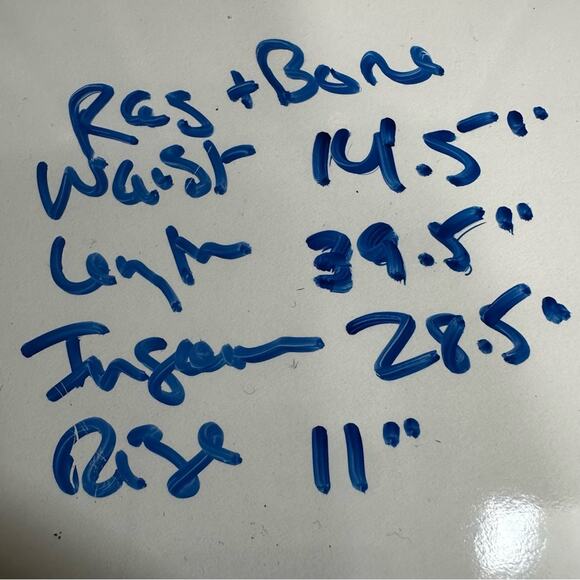 Rag + Bone
Waist 14.5"
Length 39.5"
Inseam 28.5"
Rise 11"